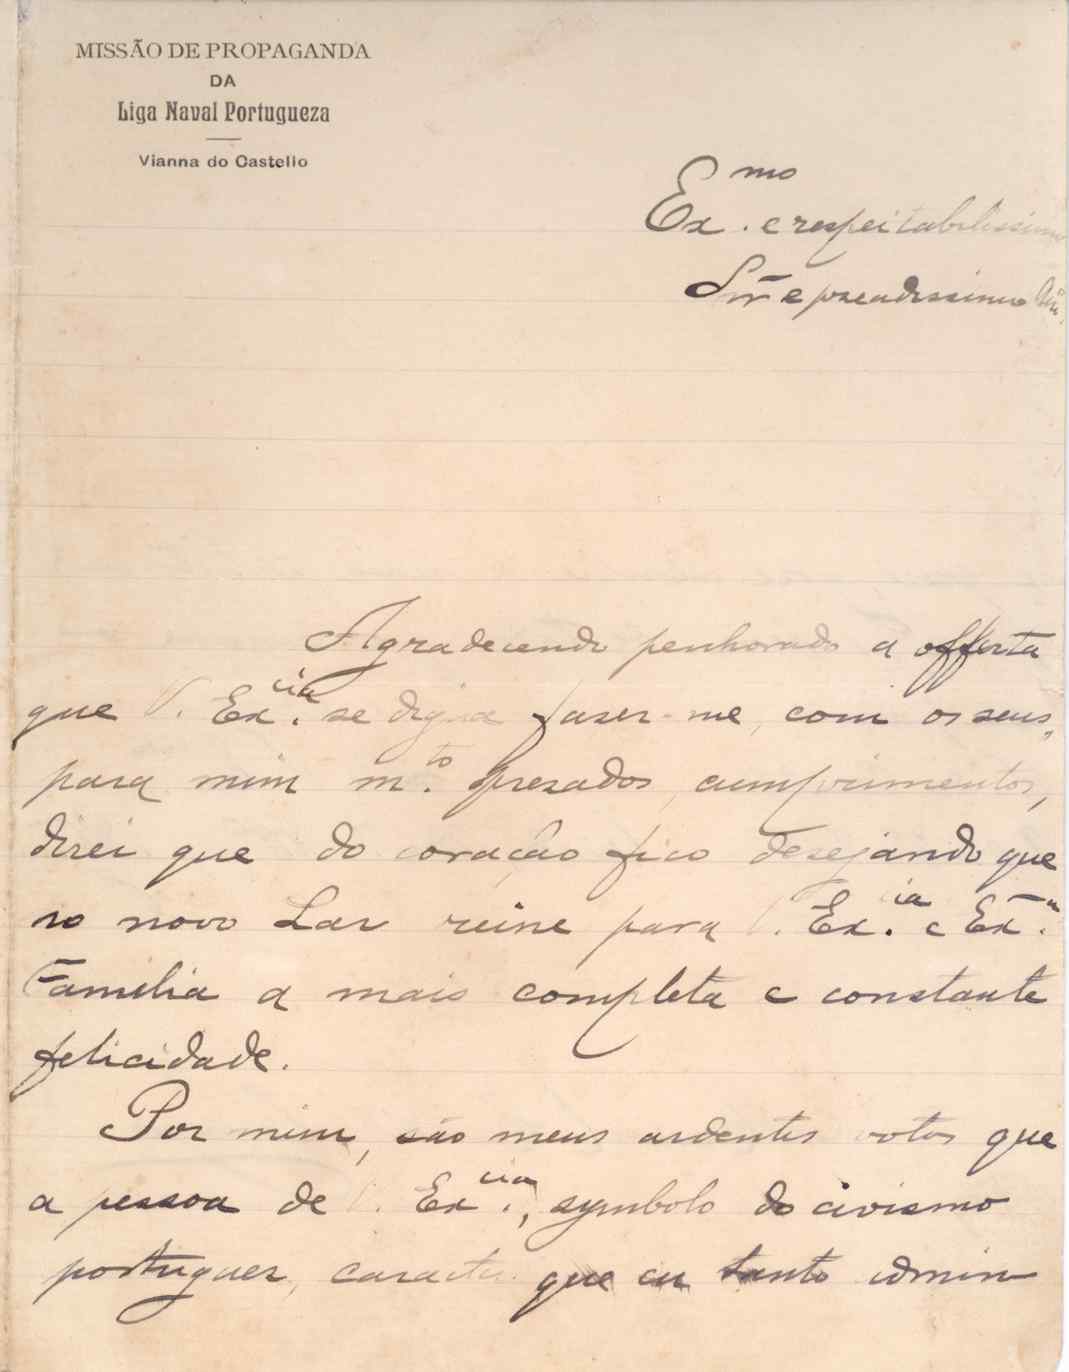 MISSÃO DE PROPAGANDA
DA
Liga Naval Portugueza
Vianna do Castello
Ex.mo e respeitabilissimo
Snr e presadissimo
Agradecendo penhorado a offerta
que V. Ex.cia se digna faser-me, com os seus,
para mim m.to presados, cumprimentos,
direi que do coração fico desejando que
no novo Lar reine para V. Ex.cia e Ex.ma
Familia a mais completa e constante
felicidade.
Por mim, são meus ardentes votos que
a pessoa de V. Ex.cia, symbolo do civismo
portuguez, caracter que eu tanto admiro